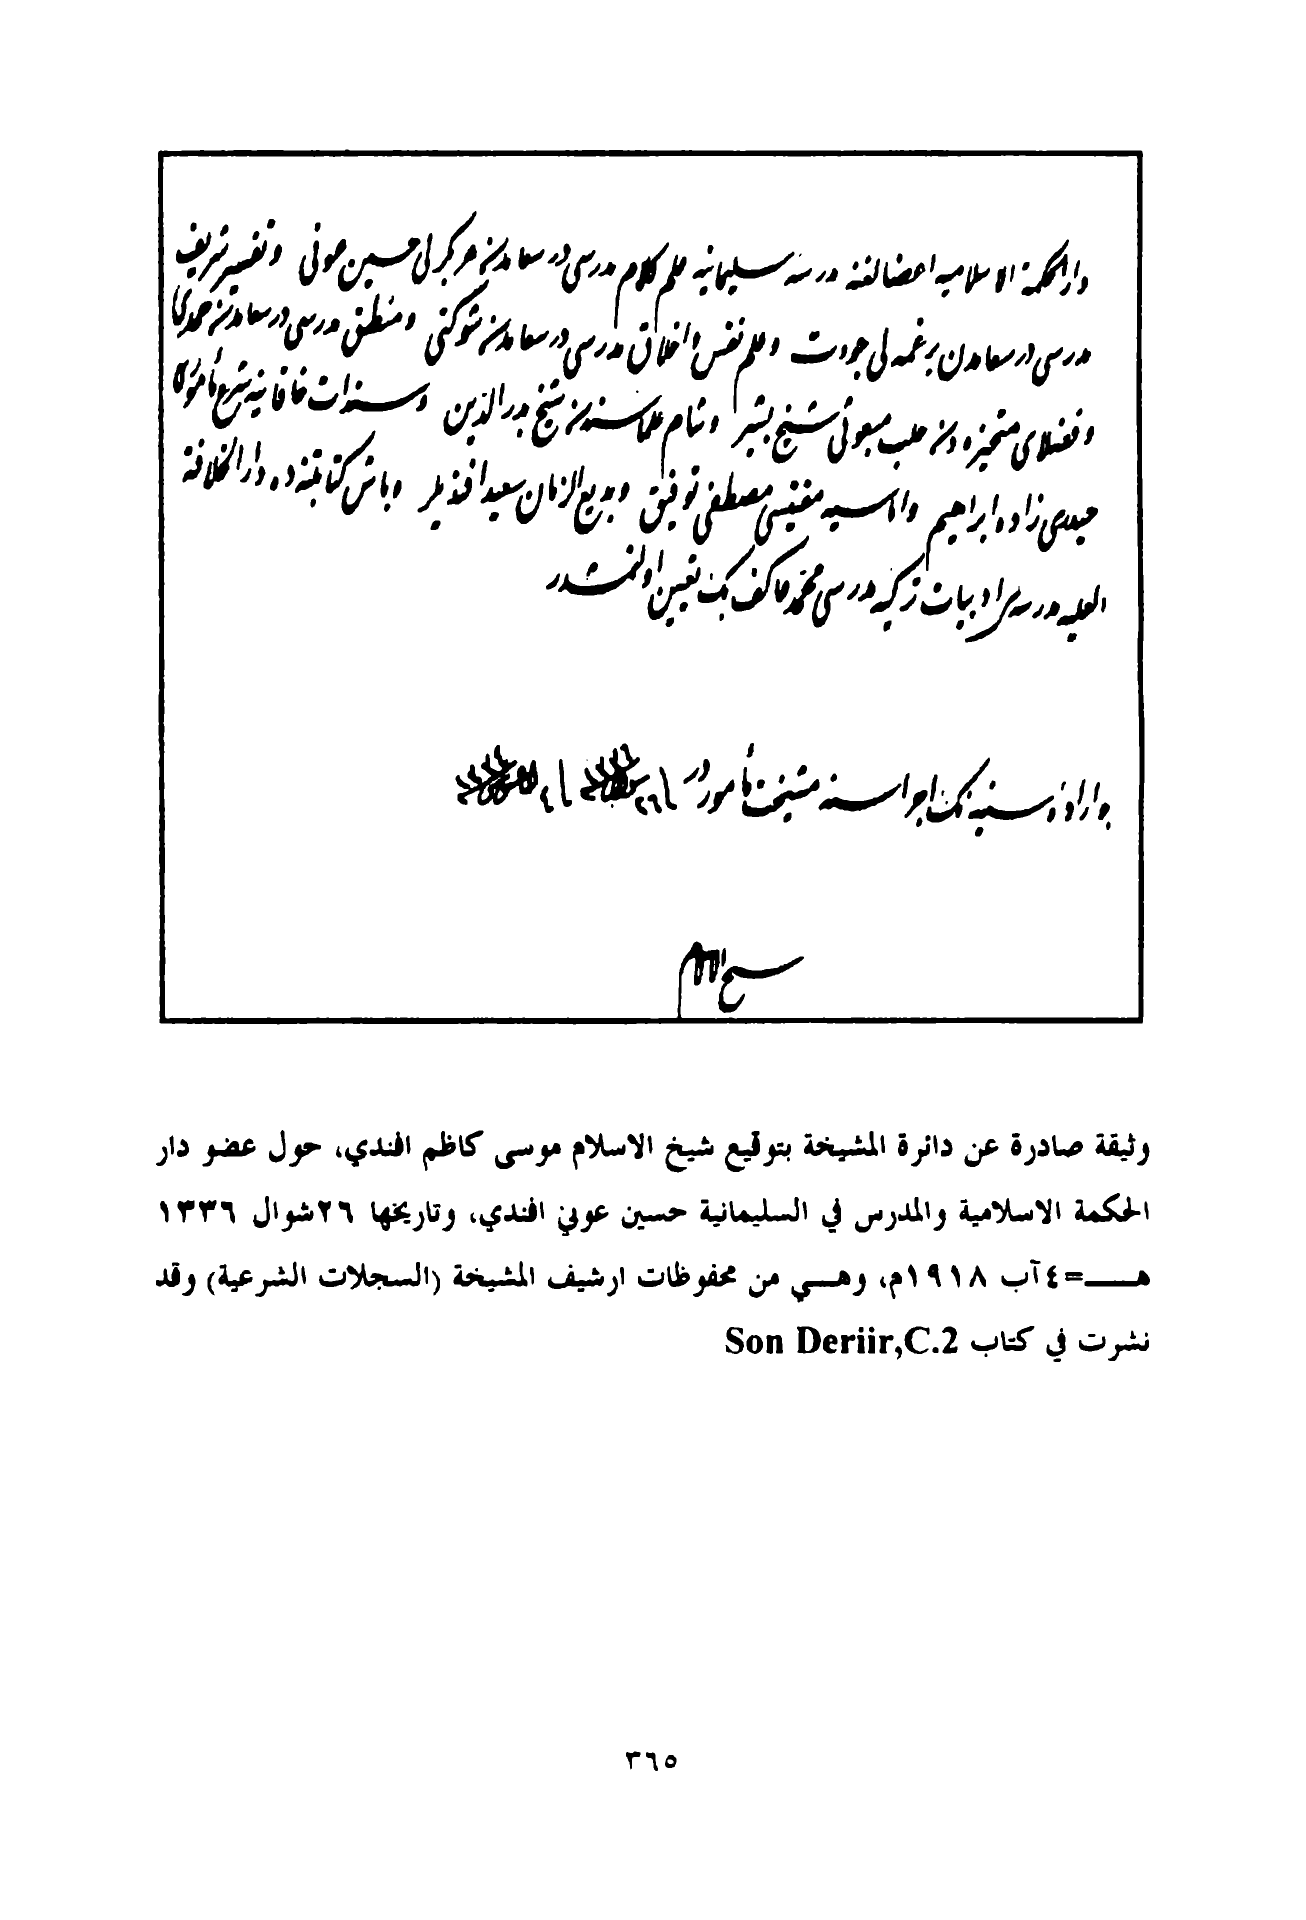 دار الحكمة الاسلاميه اعضالغنه مدرسه سليمانيه علم كلام مدرسى درسعامدن عربكرلى حسين عونى وتفسير شريف
مدرسى درسعامدن برغمه لى جودت وعلم نفس واخلاق مدرسى درسعامدن شوكتى ومنطق مدرسى درسعامدن حمدى
وفضلاى متحيزه دن حلب مبعوثى شيخ بشير وشام علماسندن شيخ بدرالدين وسندات خاقانيه شرع مأمورى
حيدرى زاده ابراهيم والاسيه مفتيسى مصطفى توفيق وبديع الزمان سعيد افنديلر وباش كتابتنه ده دار الخلافة
العليه مدرسه سى ادبيات تركيه مدرسى محمد عاكف بك تعيين اولنمشدر
بو اراده سنيه نك اجراسنه مشيخت مأموردر ٢٦ ٤
شيخ الاسلام
وثيقة صادرة عن دائرة المشيخة بتوقيع شيخ الاسلام موسى كاظم افندي، حول عضو دار
الحكمة الاسلامية والمدرس في السليمانية حسين عوني افندي، وتاريخها ٢٦شوال ١٣٣٦
هـــ=٤آب ١٩١٨م، وهـــي من محفوظات ارشيف المشيخة (السجلات الشرعية) وقد
نشرت في كتاب Son Deriir,C.2
٣٦٥